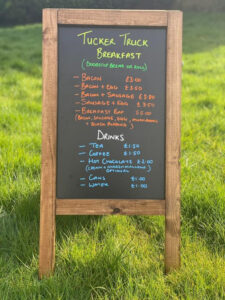 TUCKER TRUCK
BREAKFAST
(DOORSTOP BREAD OR ROLL)
- BACON £3.00
- BACON + EGG £3.50
- BACON + SAUSAGE £3.50
- SAUSAGE + EGG £3.50
- BREAKFAST BAP £5.00
(BACON, SAUSAGE, EGG, MUSHROOMS
+ BLACK PUDDING)
DRINKS
- TEA £1.50
- COFFEE £1.50
- HOT CHOCOLATE £2.00
(CREAM + MARSHMALLOWS
OPTIONAL)
- CANS £1.00
- WATER £1.00